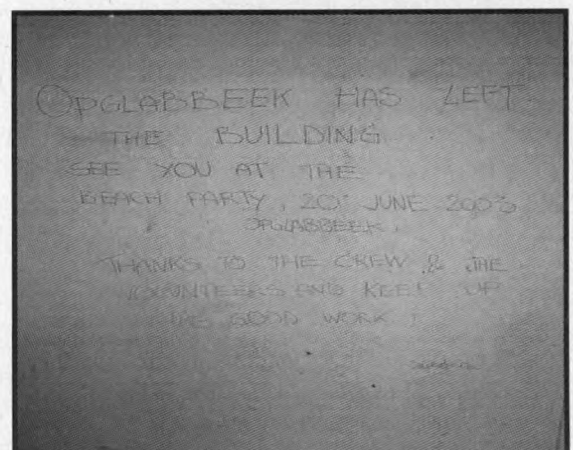 OPGLABBEEK HAS LEFT
THE BUILDING
SEE YOU AT THE
BEACH PARTY, 20 JUNE 2003
OPGLABBEEK
THANKS TO THE CREW & THE
VOLUNTEERS AND KEEP UP
THE GOOD WORK !